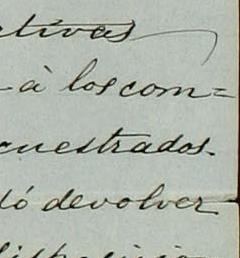 ativas
à los com=
cuestrados.
dó devolver